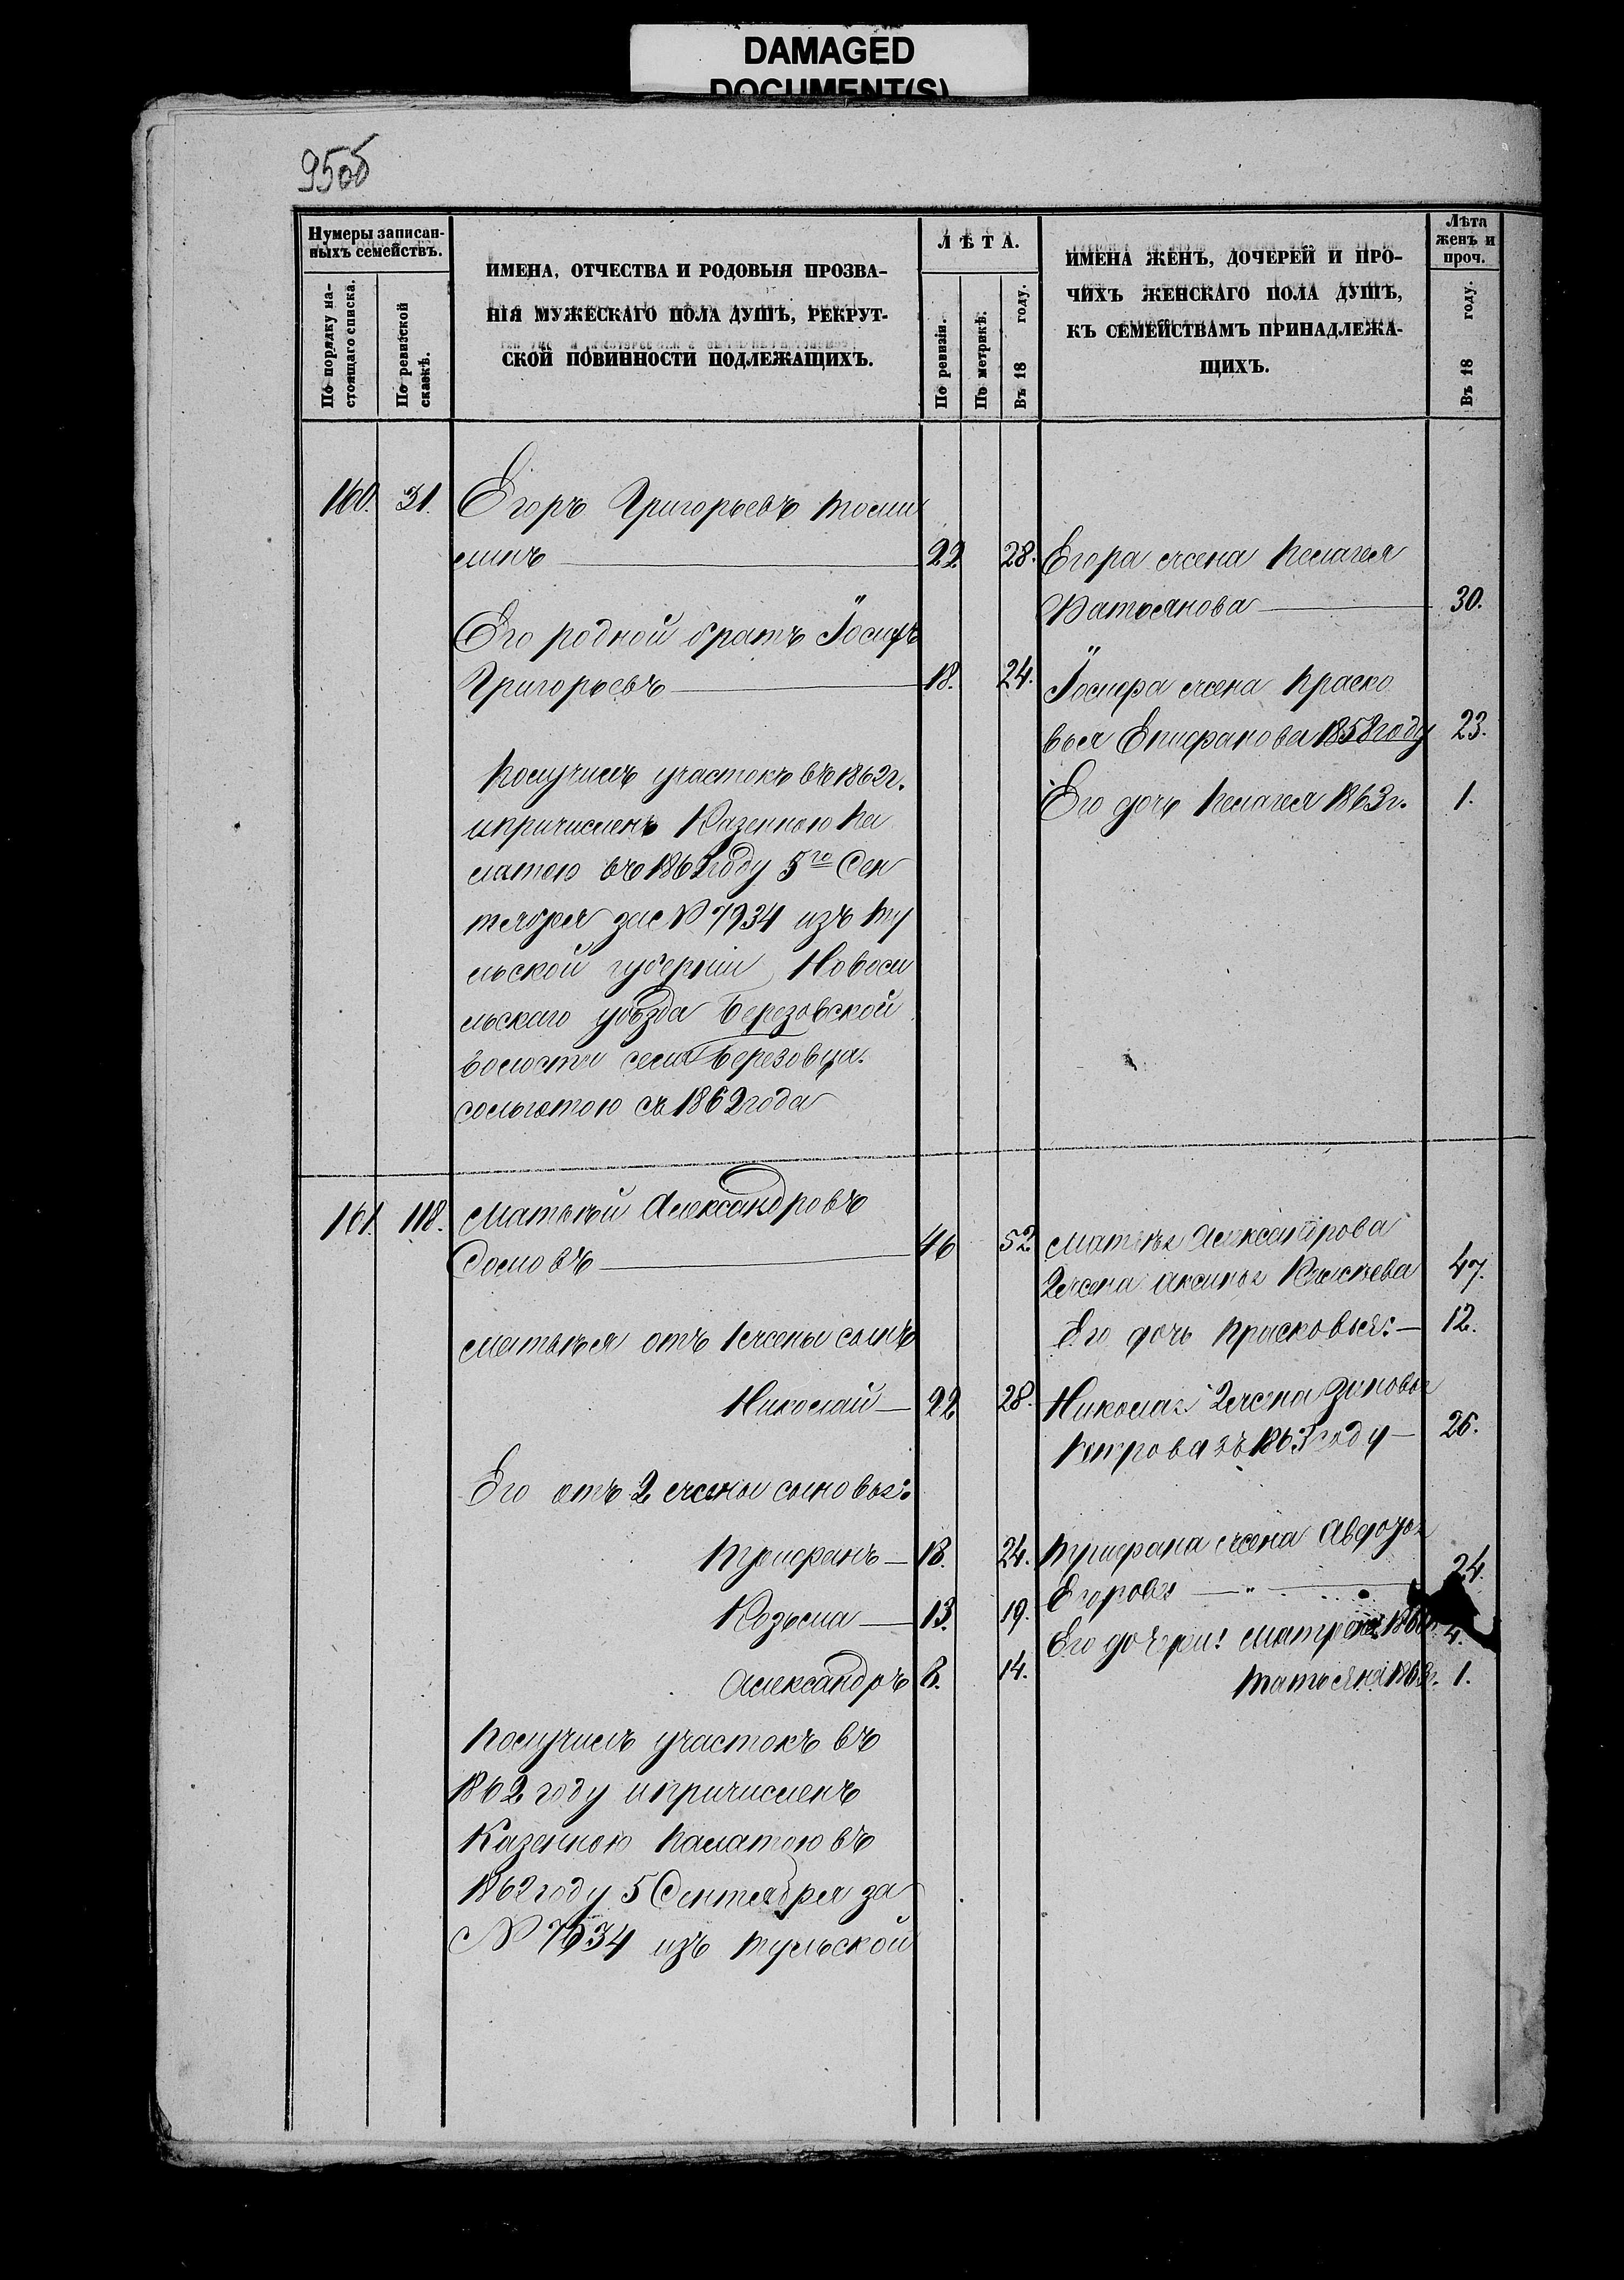 DAMAGED
DOCUMENT(S)
95об
Нумеры записан-
ныхъ семействъ.
По порядку на-
стоящаго списка.
По ревизской
сказкѣ.
ИМЕНА, ОТЧЕСТВА И РОДОВЫЯ ПРОЗВА-
НІЯ МУЖЕСКАГО ПОЛА ДУШЪ, РЕКРУТ-
СКОЙ ПОВИННОСТИ ПОДЛЕЖАЩИХЪ.
ЛѢТА.
По ревизіи.
По метрикѣ.
Въ 18 году.
ИМЕНА ЖЕНЪ, ДОЧЕРЕЙ И ПРО-
ЧИХЪ ЖЕНСКАГО ПОЛА ДУШЪ,
КЪ СЕМЕЙСТВАМЪ ПРИНАДЛЕЖА-
ЩИХЪ.
Лѣта
женъ и
проч.
Въ 18 году.
160. 31. Егоръ Григорьевъ Томи
линъ 22 28.
Его родной братъ Іосифъ
Григорьевъ 18. 24.
Получилъ участокъ въ 1862 г.
и причисленъ Казенною Па
латою въ 1862 году 5го Сен
тября за № 7934 изъ Ту
льской губерніи Новоси
льскаго уѣзда Березовской
волости села Березовца.
сольготою съ 1862 года
Егора жена Пелагея
30.
Іосифа жена Праско
вья Епифанова 1858 году 23.
Его дочь Пелагея 1863 г. 1.
161. 118. Матвѣй Александровъ
Сомовъ 46 52
Матвѣя отъ 1 жены сынъ
Николай 22 28.
Его отъ 2 жены сыновья:
Трифанъ 18. 24.
Козьма 13. 19.
Александръ 8. 14.
Получилъ участокъ въ
1862 году и причисленъ
Казенною Палатою въ
1862 году 5 Сентября за
№ 7934 изъ Тульской
Матвѣя Александрова
2 жена Аксинья 47.
Его дочь Прасковья: 12.
Николая 2 жена Зиновья
Петрова въ 1863 году 26.
Трифана жена Авдотья
Егорова 24.
Его дочери: Матрена 4.
Татьяна 1863 г. 1.